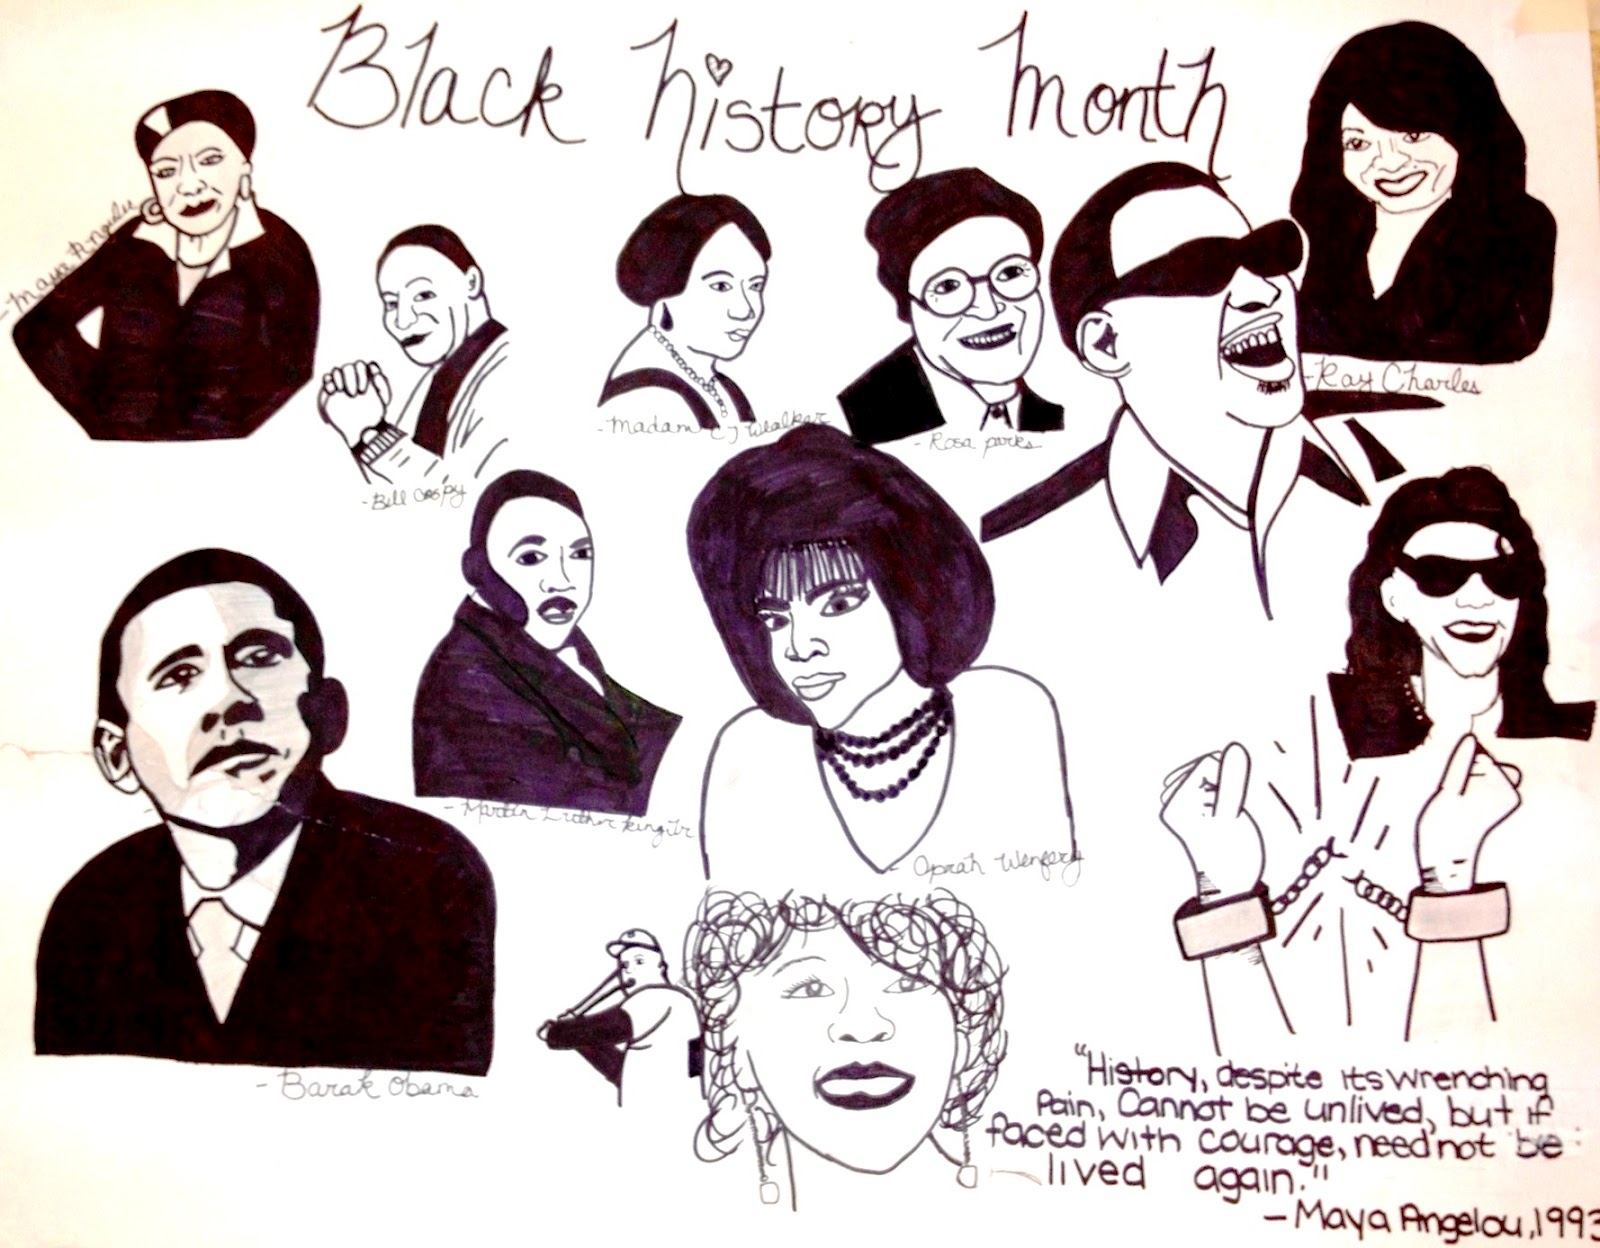 Black history Month
-Maya Angelu
-Ray Charles
-Madam CJ Wealker
-Rosa parks
-Bill Cospy
-Martin Luther king Jr
-Oprah Wenfery
-Barak Obama
"History, despite its wrenching
Pain, Cannot be unlived, but if
faced with courage, need not be
lived again."
-Maya Angelou, 1993